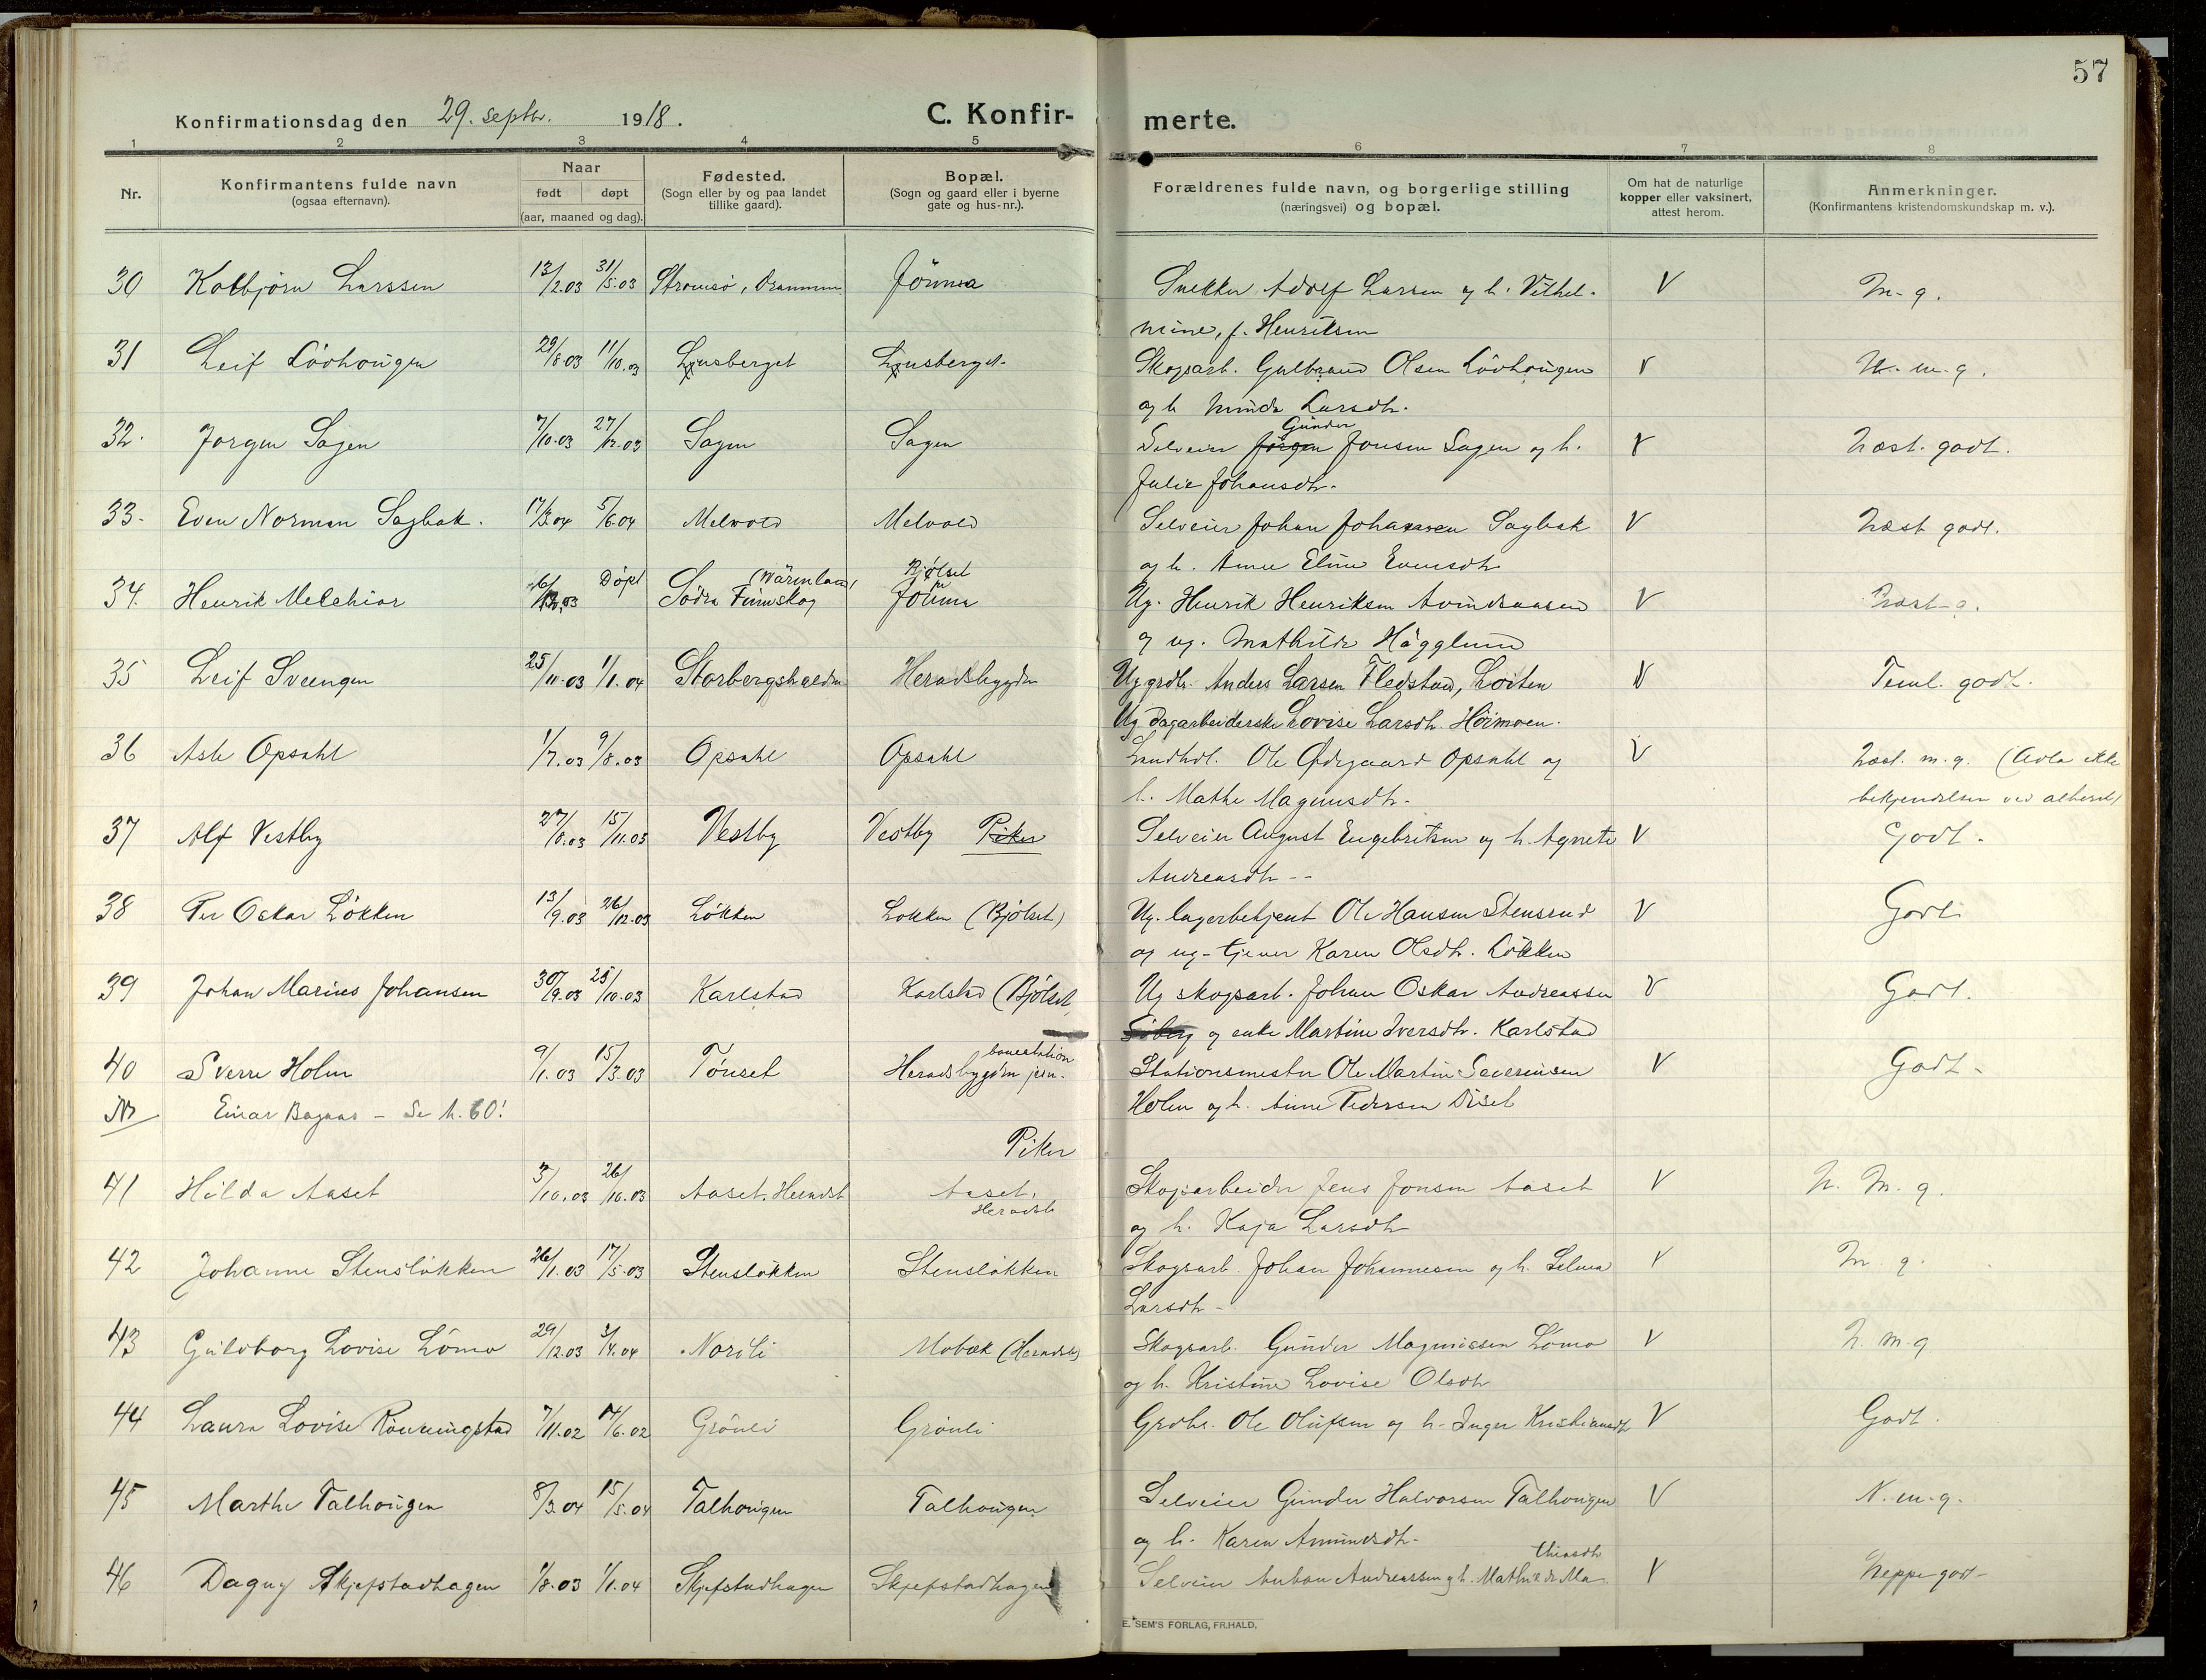 57
Konfirmationsdag den 29. septbr. 1918.
C. Konfir-
merte.
1 2 3 4 5 6 7 8
Nr.
Konfirmantens fulde navn
(ogsaa efternavn).
Naar
født døpt
(aar, maaned og dag).
Fødested.
(Sogn eller by og paa landet
tillike gaard).
Bopæl.
(Sogn og gaard eller i byerne
gate og hus-nr.).
Forældrenes fulde navn, og borgerlige stilling
(næringsvei) og bopæl.
Om hat de naturlige
kopper eller vaksinert,
attest herom.
Anmerkninger.
(Konfirmantens kristendomskundskap m. v.).
30 Kolbjørn Larssen 13/2.03 31/5.03 Strømsø, Drammen Jönna Snekker Adolf Larsen og h. Vilhel- V M-g.
mine, f. Henriksen
31 Leif Lövhougen 29/8.03 11/10.03 Ljusberget Ljusberget Skogsarb. Gulbrand Olsen Lövhougen V N. m. g.
og h Minda Larsdtr.
32. Jørgen Sagen 7/10.03 27/12.03 Sagen Sagen Selveier Jörgen Gunder Jonsen Sagen og h. V Næst. godt.
Julie Johansdtr.
33. Even Norman Sagbak. 17/3.04 5/6.04 Melvold Melvold Selveier Johan Johansen Sagbak V Næst godt.
og h. Anne Eline Evensdtr
34. Henrik Melchior Döpt Södra Finnskog (Wärmland) Bjølset Jönna Ug. Henrik Henriksen V Næst-g.
og ug. Mathilde Hägglund
35 Leif Sveengen 25/10.03 1/1.04 Heradsbygden Ug grdbr. Anders Larsen Fledstad, Løiten V Teml. godt.
Ug dagarbeiderske Lovise Larsdtr. Höimoen.
36 Asle Opsahl 1/7.03 9/8.03 Opsahl Opsahl Landhdl. Ole Ødegaard Opsahl og V Næst. m. g. (Avla ikke
h. Mathe Magnusdtr. bekjendelsen ved alteret)
37 Alf Vestby 27/8.03 15/11.03 Vestby Vestby Piker Selveier August Engebretsen og h. Agnete V Godt.
Andreasdtr --
38 Per Oskar Løkken 13/9.03 26/12.03 Løkken Løkken (Bjølset) Ug. lagerbetjent Ole Hansen Stensrud V Godt
og ug. tjener Karen Olsdtr. Løkken
39 Johan Marius Johansen 30/9.03 25/10.03 Karlstad Karlstad (Bjølset) Ug skogsarb. Johan Oskar Andreassen V Godt.
og enke Martine Iversdtr. Karlstad
40 Sverre Holm 9/1.03 15/3.03 Tönset Heradsbygden jern-banestation Stationsmester Ole Martin Severinsen V Godt-
Holm og h. Anne Pedersen Diset
NB Einar Bagaas - Se N. 60!
Piker
41 Hilda Aaset 3/10.03 26/10.03 Aaset. Heradsb Aaset. Heradsb Skogsarbeider Jens Jonsen Aaset V N. M. g.
og h. Kaja Larsdtr
42 Johanne Stensløkken 26/1.03 17/5.03 Stensløkken Stensløkken Skogsarb. Johan Johannesen og h. Selma V M. g.
Larsdtr-
43 Guldborg Lovise Lömo 29/12.03 3/4.04 Nordli Mobæk (Heradsb) Skogsarb. Gunder Magnussen Lömo V N. m. g
og h. Kristine Lovise Olsdtr
44 Laura Lovise Rönningstad 7/11.02 14/6.02 Grönli Grönli Grdbr. Ole Olufsen og h. Inger Kristiansdtr V Godt.
45 Marthe Talhougen 8/3.04 15/5.04 Talhougen Talhougen Selveier Gunder Halvorsen Talhougen V N. m. g.
og h. Karen Amundsdtr.
46 Dagny Skjefstadhagen 1/8.03 1/1.04 Skjefstadhagen Skjefstadhagen Selveier Anton Andreassen og h. Mathilde Ma-thiasdtr V Neppe godt-
E. SEM'S FORLAG, FR.HALD.